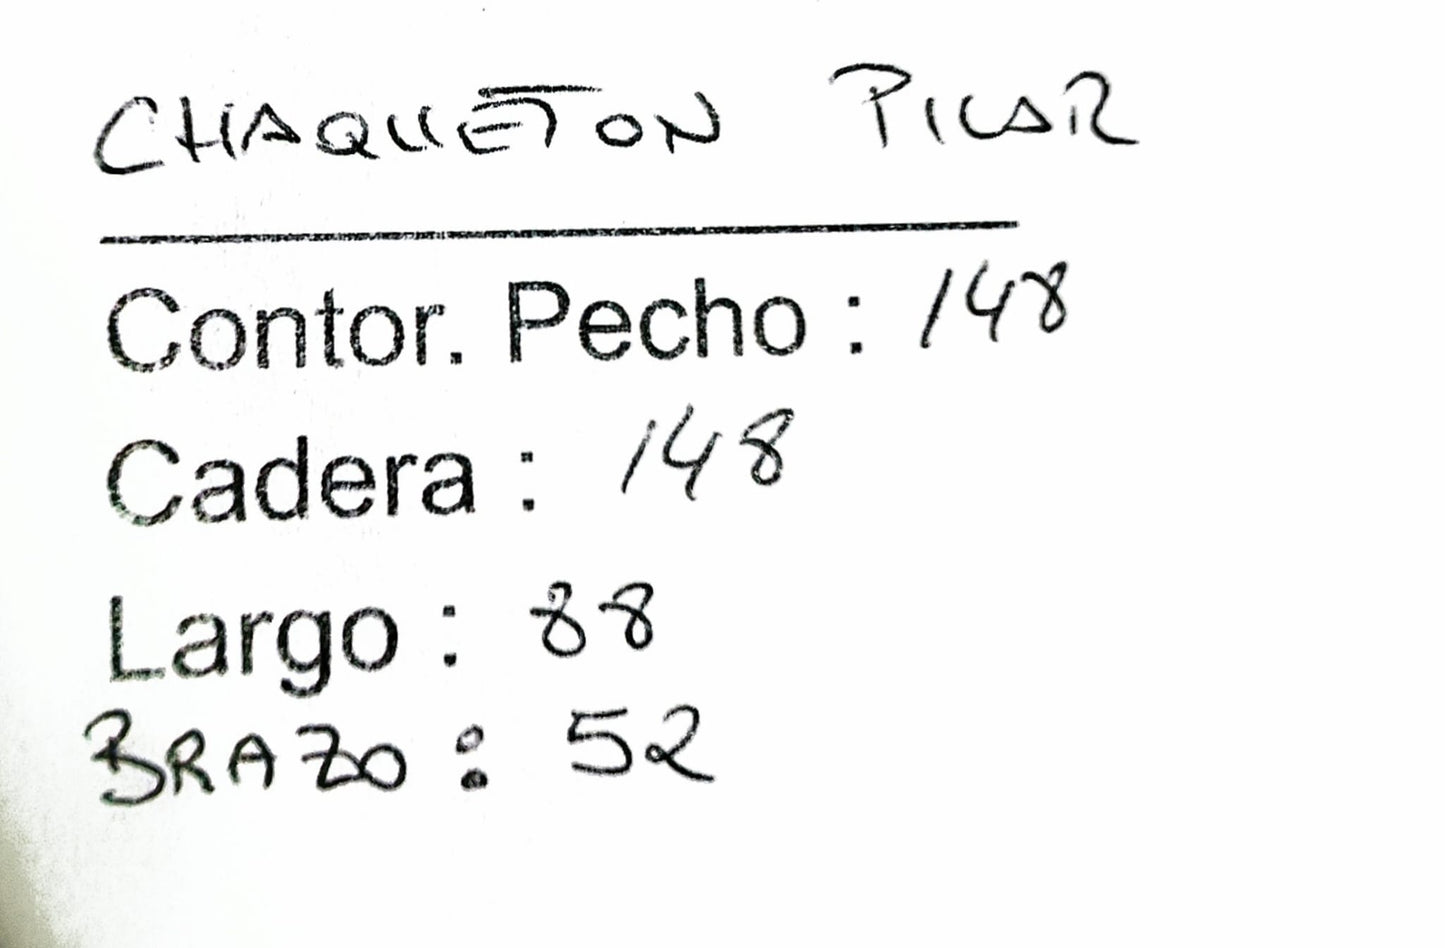 CHAQUETON PILAR
Contor. Pecho : 148
Cadera : 148
Largo : 88
BRAZO : 52